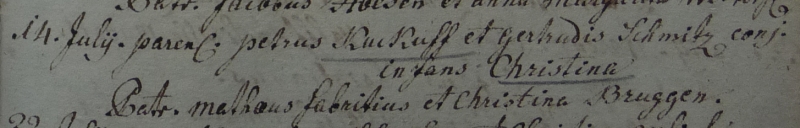 Patr. Jacobus Holsen et anna
14. Julij. parent. petrus Kuckuff et gertrudis Schmitz conj.
infans Christina
Patr. mathæus fabritius et Christina Bruggen.